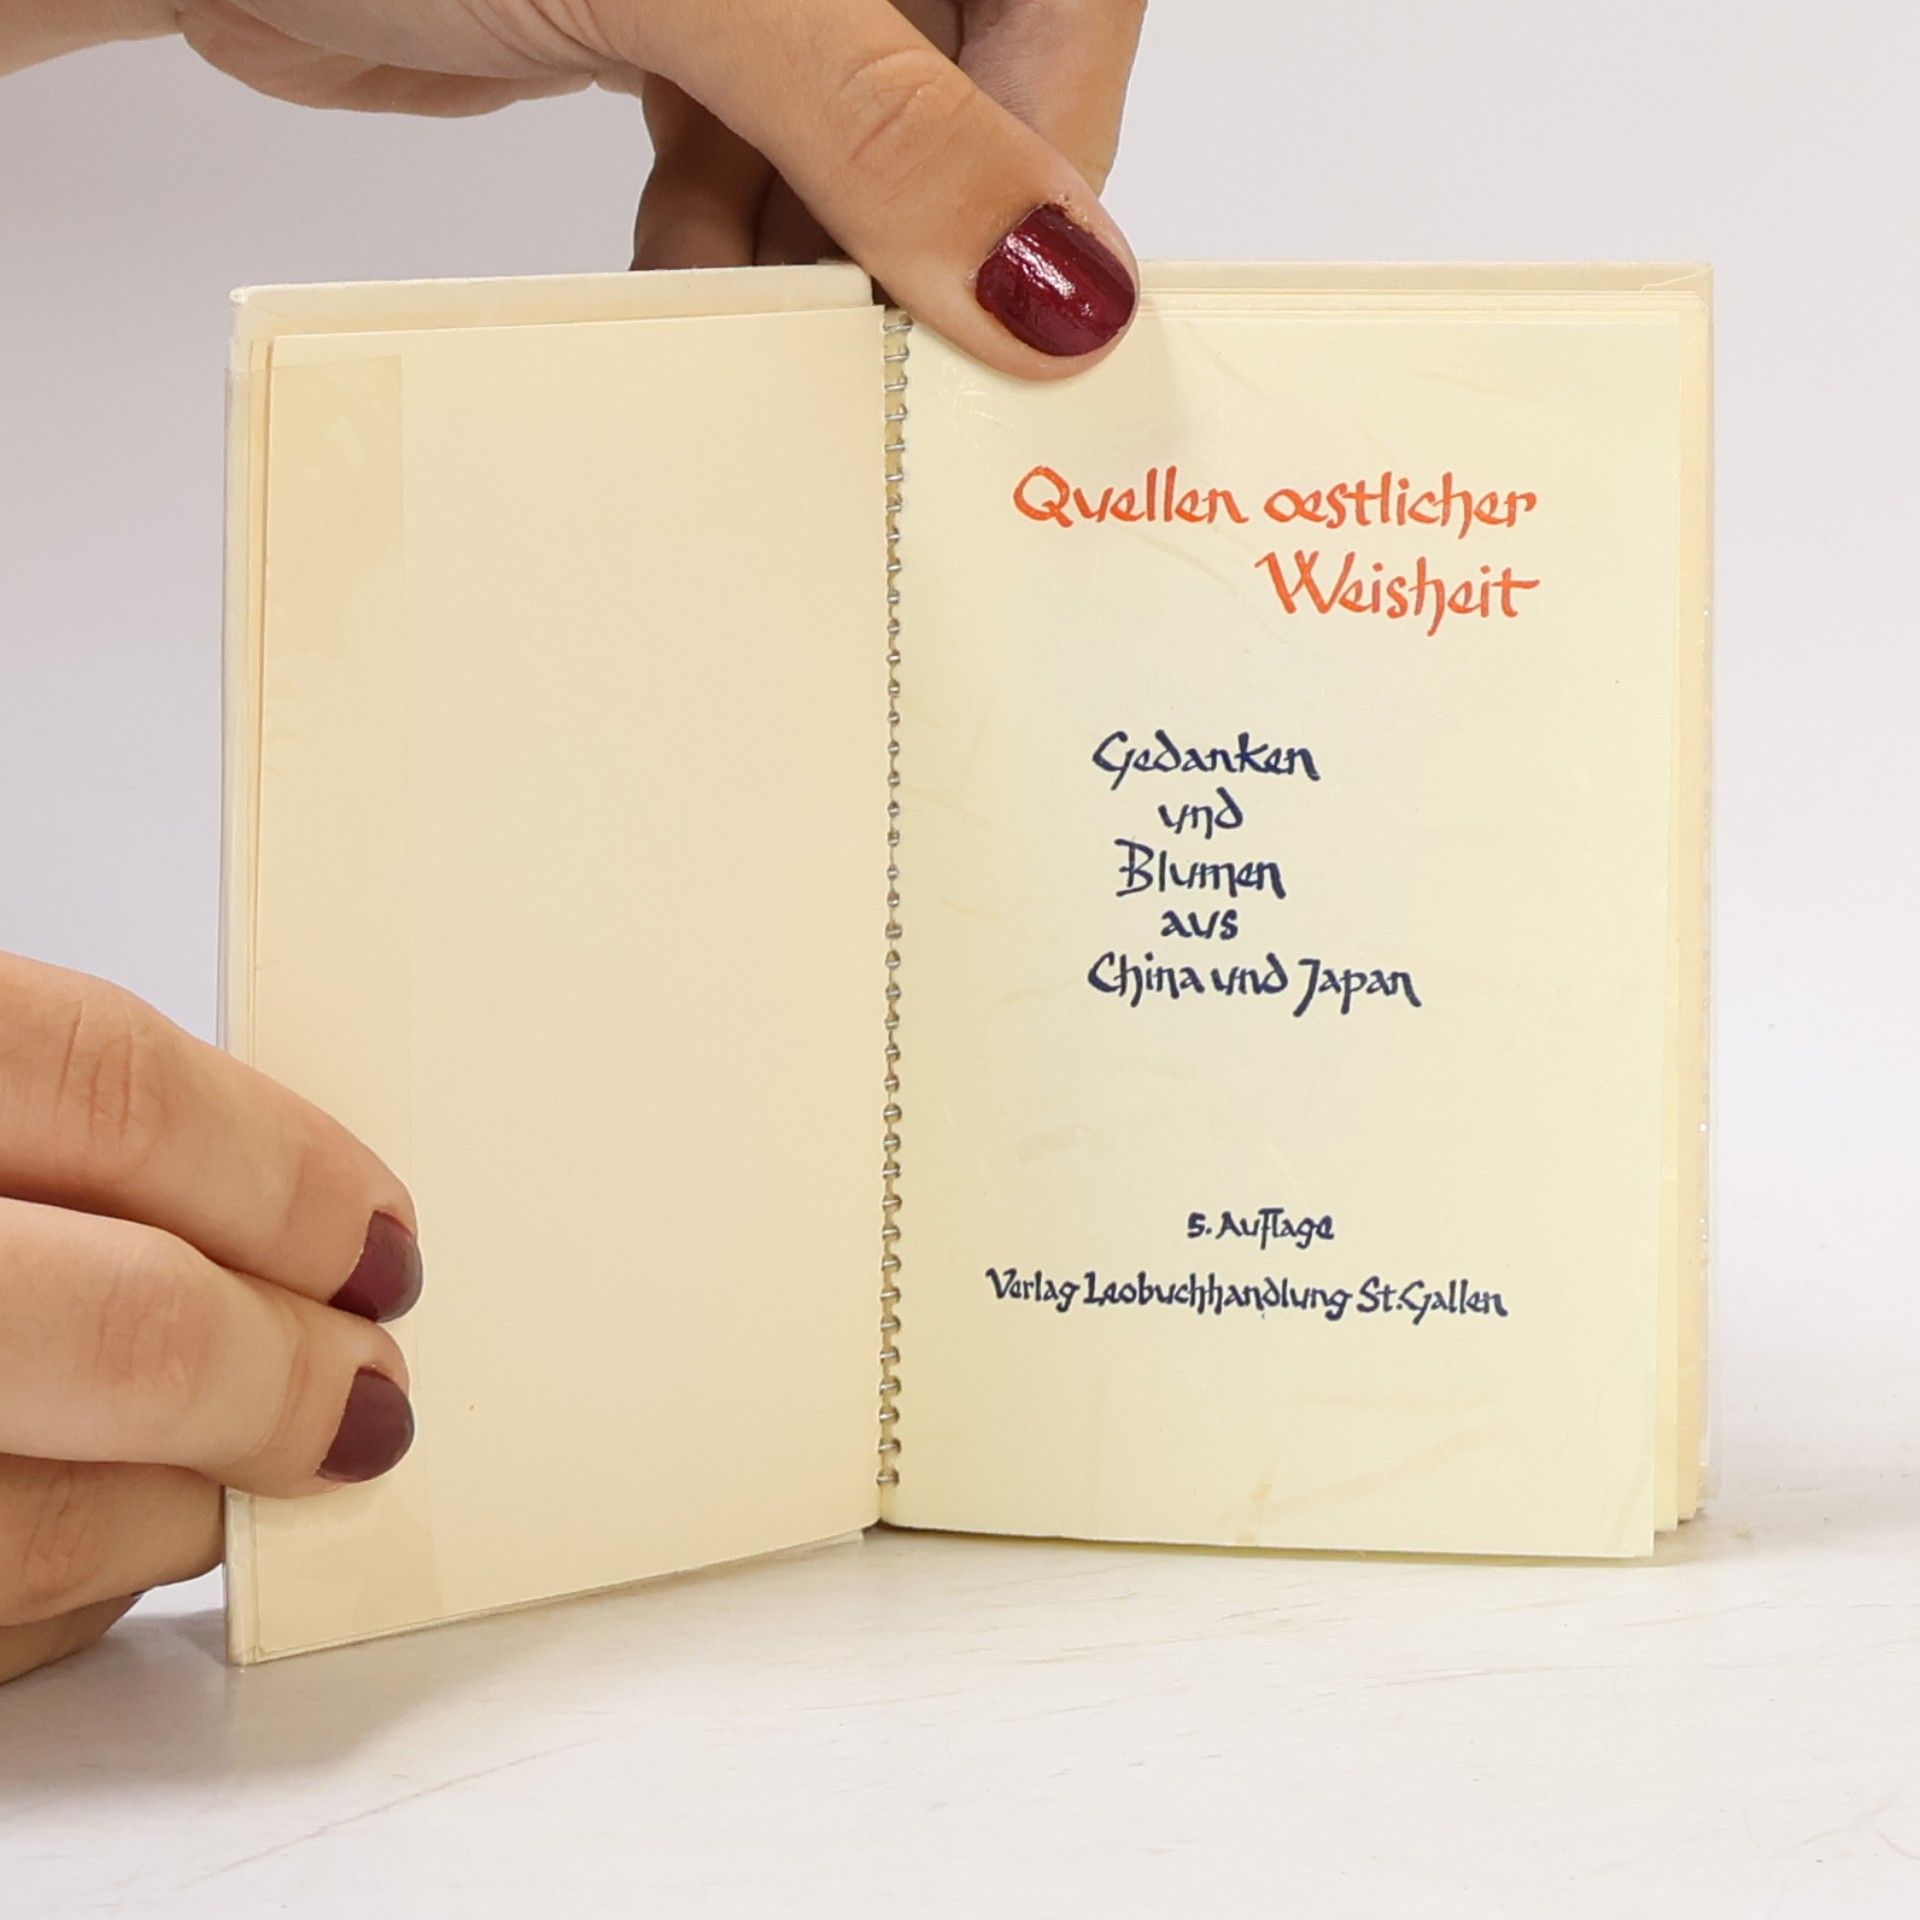 Quellen oestlicher
Weisheit
Gedanken
und
Blumen
aus
China und Japan
5. Auflage
Verlag Leobuchhandlung St. Gallen